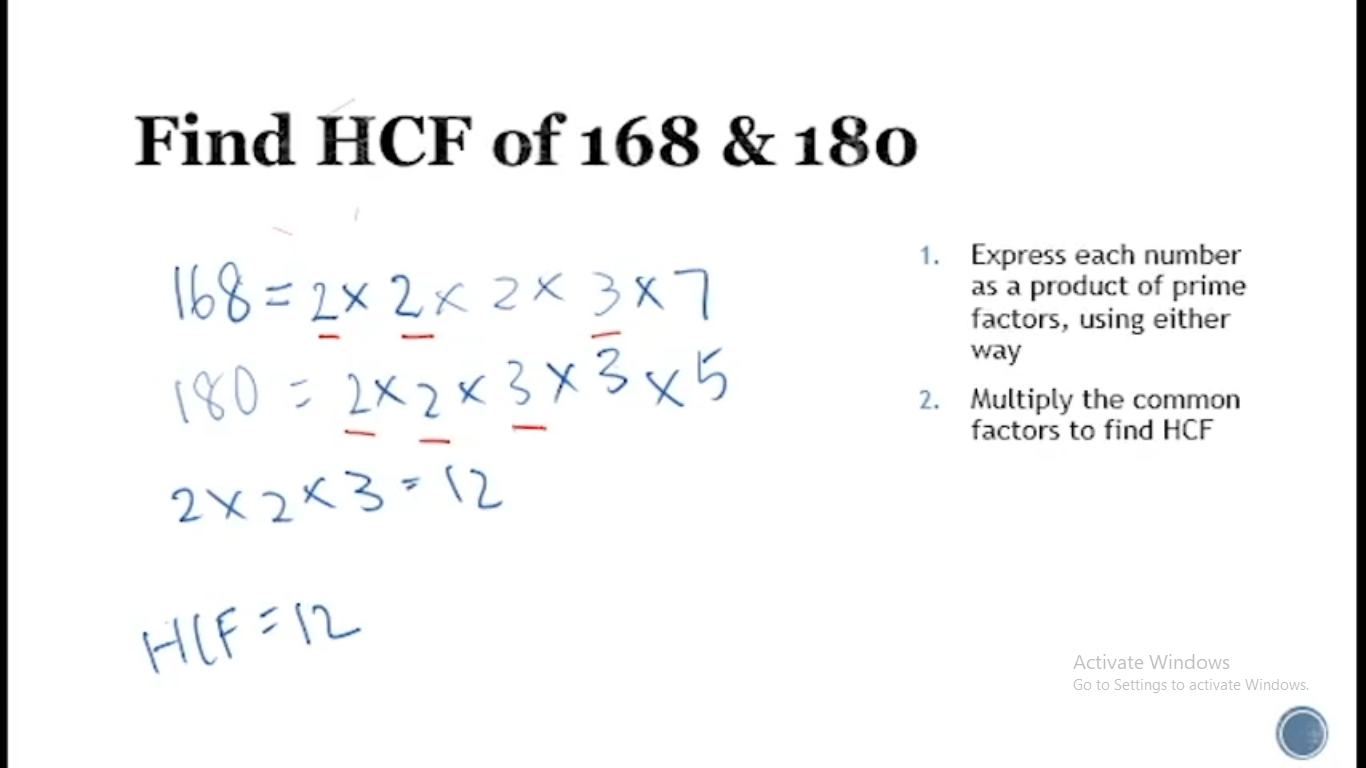 Find HCF of 168 & 180
168 = 2 × 2 × 2 × 3 × 7
180 = 2 × 2 × 3 × 3 × 5
2 × 2 × 3 = 12
HCF = 12
1. Express each number
as a product of prime
factors, using either
way
2. Multiply the common
factors to find HCF
Activate Windows
Go to Settings to activate Windows.